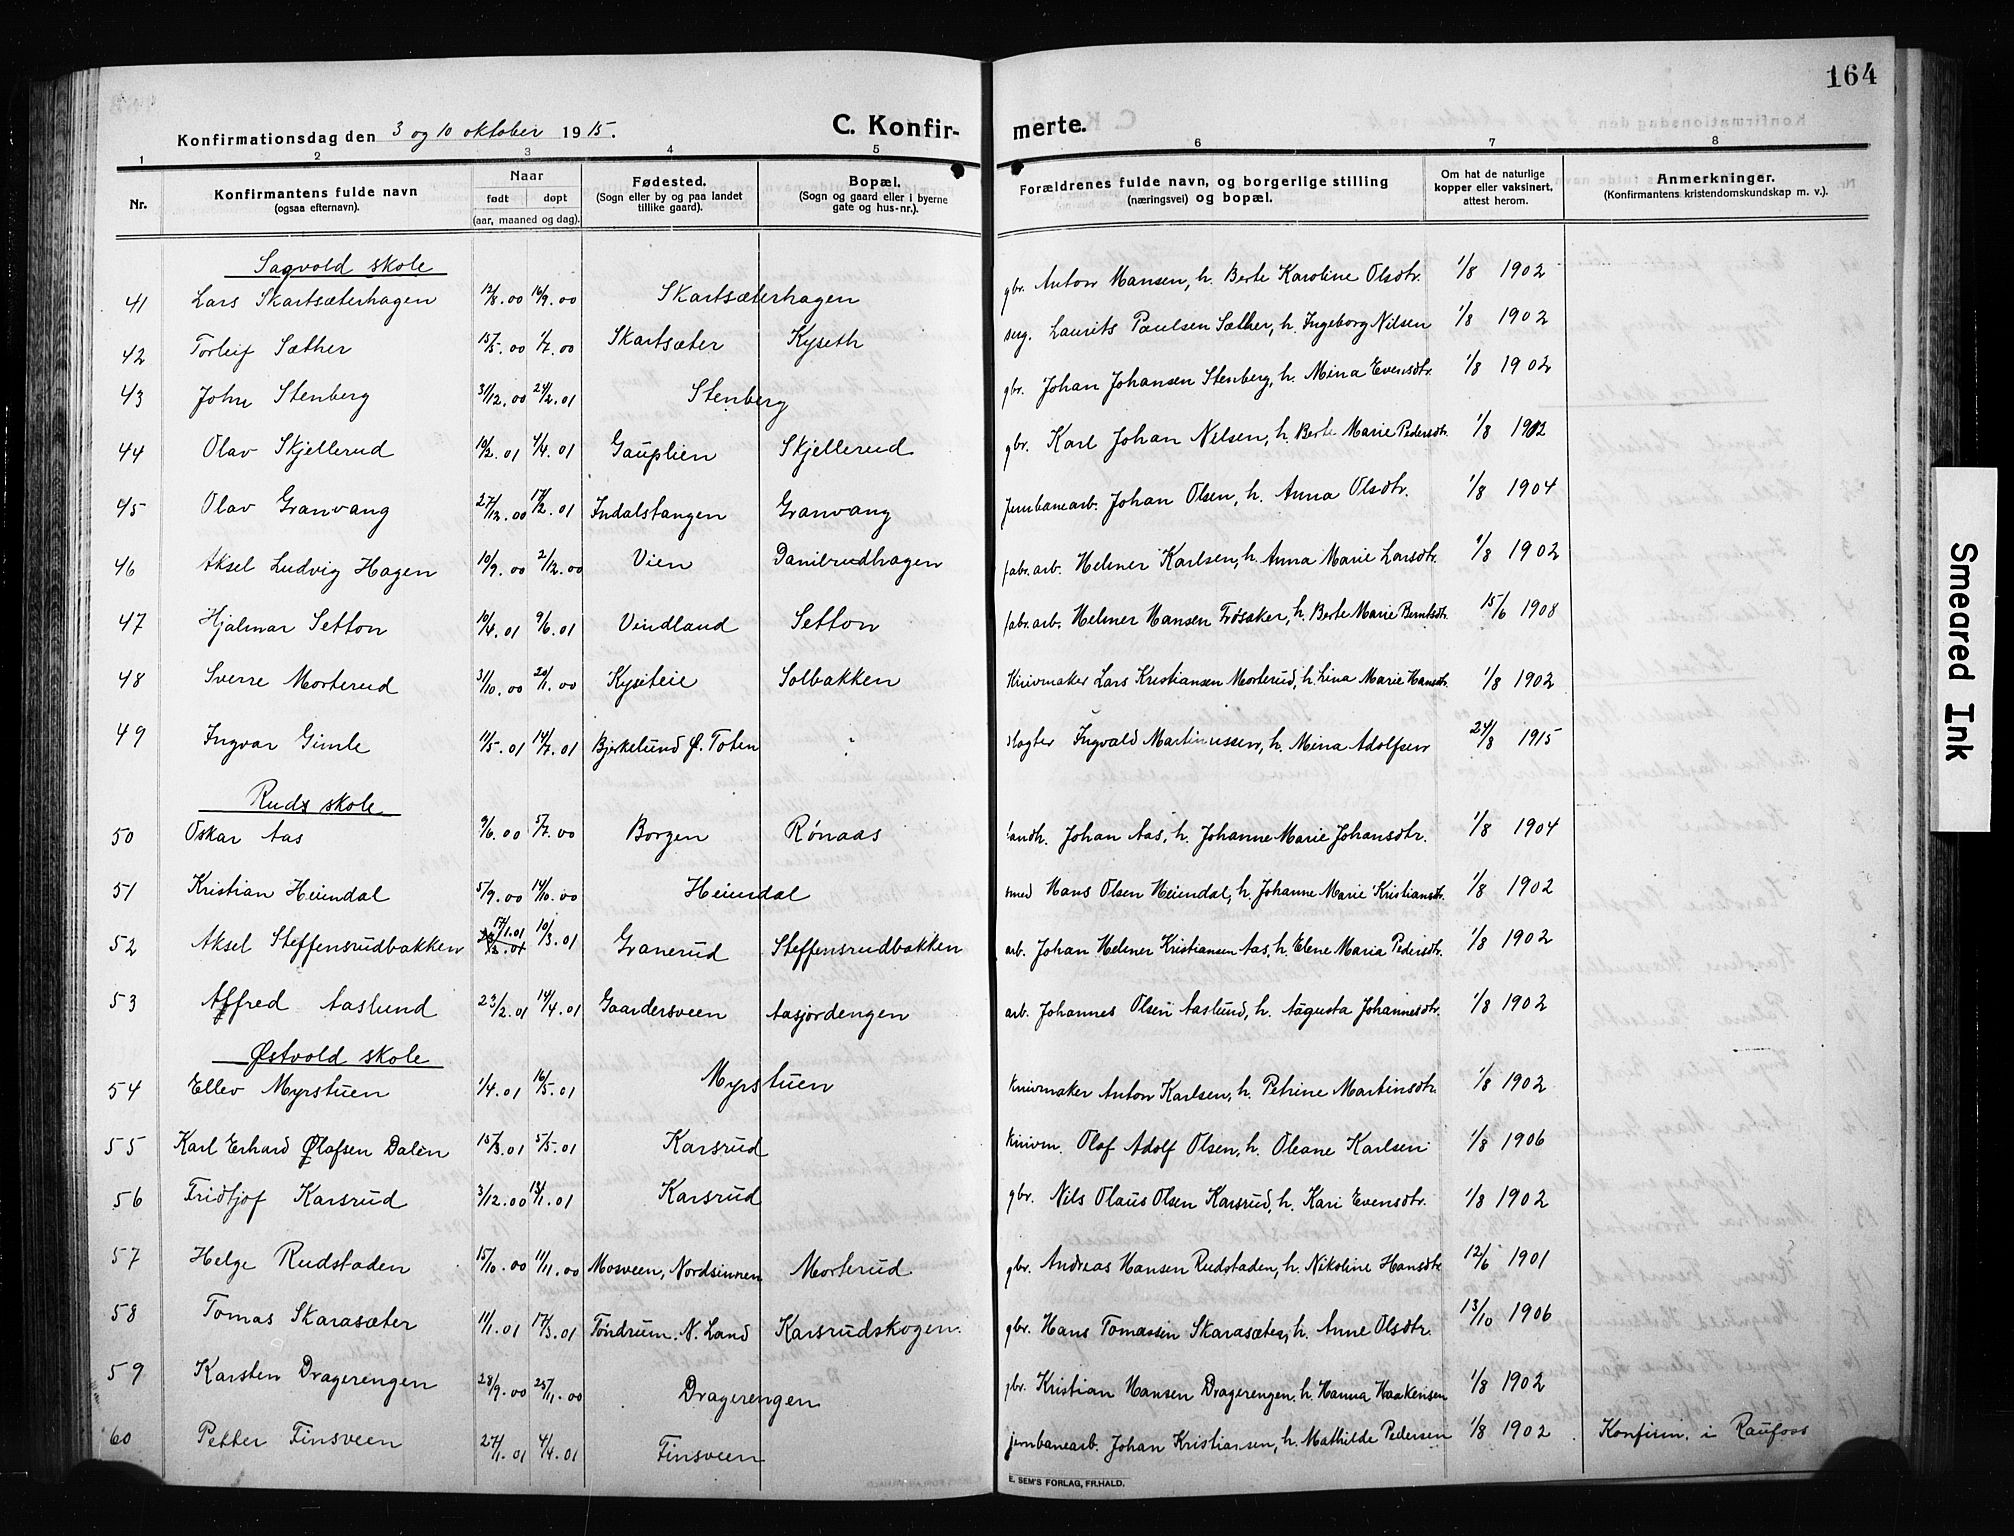 164
Konfirmationsdag den 3 og 10 oktober 1915.
C. Konfir- merte.
1 2 3 4 5 6 7 8
Nr. Konfirmantens fulde navn (ogsaa efternavn). Naar født døpt (aar, maaned og dag). Fødested. (Sogn eller by og paa landet tillike gaard). Bopæl. (Sogn og gaard eller i byerne gate og hus-nr.). Forældrenes fulde navn, og borgerlige stilling (næringsvei) og bopæl. Om hat de naturlige kopper eller vaksinert, attest herom. Anmerkninger. (Konfirmantens kristendomskundskap m. v.).
Sagvold skole
41 Lars Skartsæterhagen 12/8.00 16/9.00 Skartsæterhagen gbr. Anton Hansen, h. Berte Karoline Olsdtr. 1/8 1902
42 Torleif Sæther 15/5.00 1/7.00 Skartsæter Kyseth Laurits Paulsen Sæther, h. Ingeborg Nilsen 1/8 1902
43 John Stenberg 31/12.00 24/2.01 Stenberg gbr. Johan Johansen Stenberg, h. Mina Evensdtr. 1/8 1902
44 Olav Skjellerud 10/2.01 4/4.01 Gauplien Skjellerud gbr. Karl Johan Nilsen, h. Berte Marie Pedersdtr. 1/8 1902
45 Olav Granvang 27/12.00 17/2.01 Indalstangen Granvang jernbanearb. Johan Olsen, h. Anna Olsdtr. 1/8 1904
46 Aksel Ludvig Hagen 10/9.00 2/12.00 Vien Danilrudhagen fabr.arb. Helmer Karlsen, h. Anna Marie Larsdtr. 1/8 1902
47 Hjalmar Setton 10/4.01 9/6.01 Vindland Setton fabr.arb. Helmer Hansen Frøsaker, h. Berte Marie Berntsdtr. 15/6 1908
48 Sverre Morterud 31/10.00 20/1.00 Kyseteie Solbakken Knivmaker Lars Kristiansen Morterud, h. Lina Marie Hansdtr. 1/8 1902
49 Ingvar Gimle 11/5.01 14/7.01 Bjørkelund Ø. Toten slagter Ingvald Martinussen, h. Mina Adolfsen 24/8 1915
Ruds skole
50 Oskar Aas 9/6.00 5/7.00 Borgen Rønaas landh. Johan Aas, h. Johanne Marie Johansdtr. 1/8 1904
51 Kristian Heimdal 5/9.00 14/10.00 Heimdal smed Hans Olsen Heimdal, h. Johanne Marie Kristiansdtr. 1/8 1902
52 Aksel Steffensrudbakken 17/1.01 10/3.01 Granerud Steffensrudbakken arb. Johan Helmer Kristiansen Aas, h. Elene Maria Pedersdtr. 1/8 1902
53 Alfred Aaslund 23/2.01 14/4.01 Gaardersveen Aasjordengen arb. Johannes Olsen Aaslund, h. Augusta Johannesdtr. 1/8 1902
Østvold skole
54 Ellev Myrstuen 1/4.01 16/5.01 Myrstuen Knivmaker Anton Karlsen, h. Petrine Martinsdtr. 1/8 1902
55 Karl Erhard Olafsen Dalen 15/3.01 5/5.01 Karsrud Knivm. Olaf Adolf Olsen, h. Oleane Karlsen 1/8 1906
56 Fridtjof Karsrud 3/12.00 13/1.01 Karsrud gbr. Nils Olaus Olsen Karsrud, h. Kari Evensdtr. 1/8 1902
57 Helge Rudstaden 15/10.00 11/11.00 Mosveen, Nordsinnen Morterud gbr. Andreas Hansen Rudstaden, h. Nikoline Hansdtr 12/6 1901
58 Tomas Skarasæter 11/1.01 17/3.01 Tøndrum. N. Land Karsrudskogen. gbr. Hans Tomassen Skarasæter, h. Anne Olsdtr. 13/10 1906
59 Karsten Dragerengen 28/9.00 25/11.00 Dragerengen gbr. Kristian Hansen Dragerengen, h. Hanna Haakensen 1/8 1902
60 Petter Finsveen 27/1.01 4/4.01 Finsveen jernbanearb. Johan Kristiansen, h. Mathilde Pedersen 1/8 1902 Konfirm. i Raufoss
E. SEM'S FORLAG, FR.HALD.
Smeared Ink